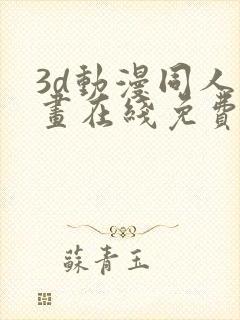 3d動漫同人
畫在綫免費
蘇青玉